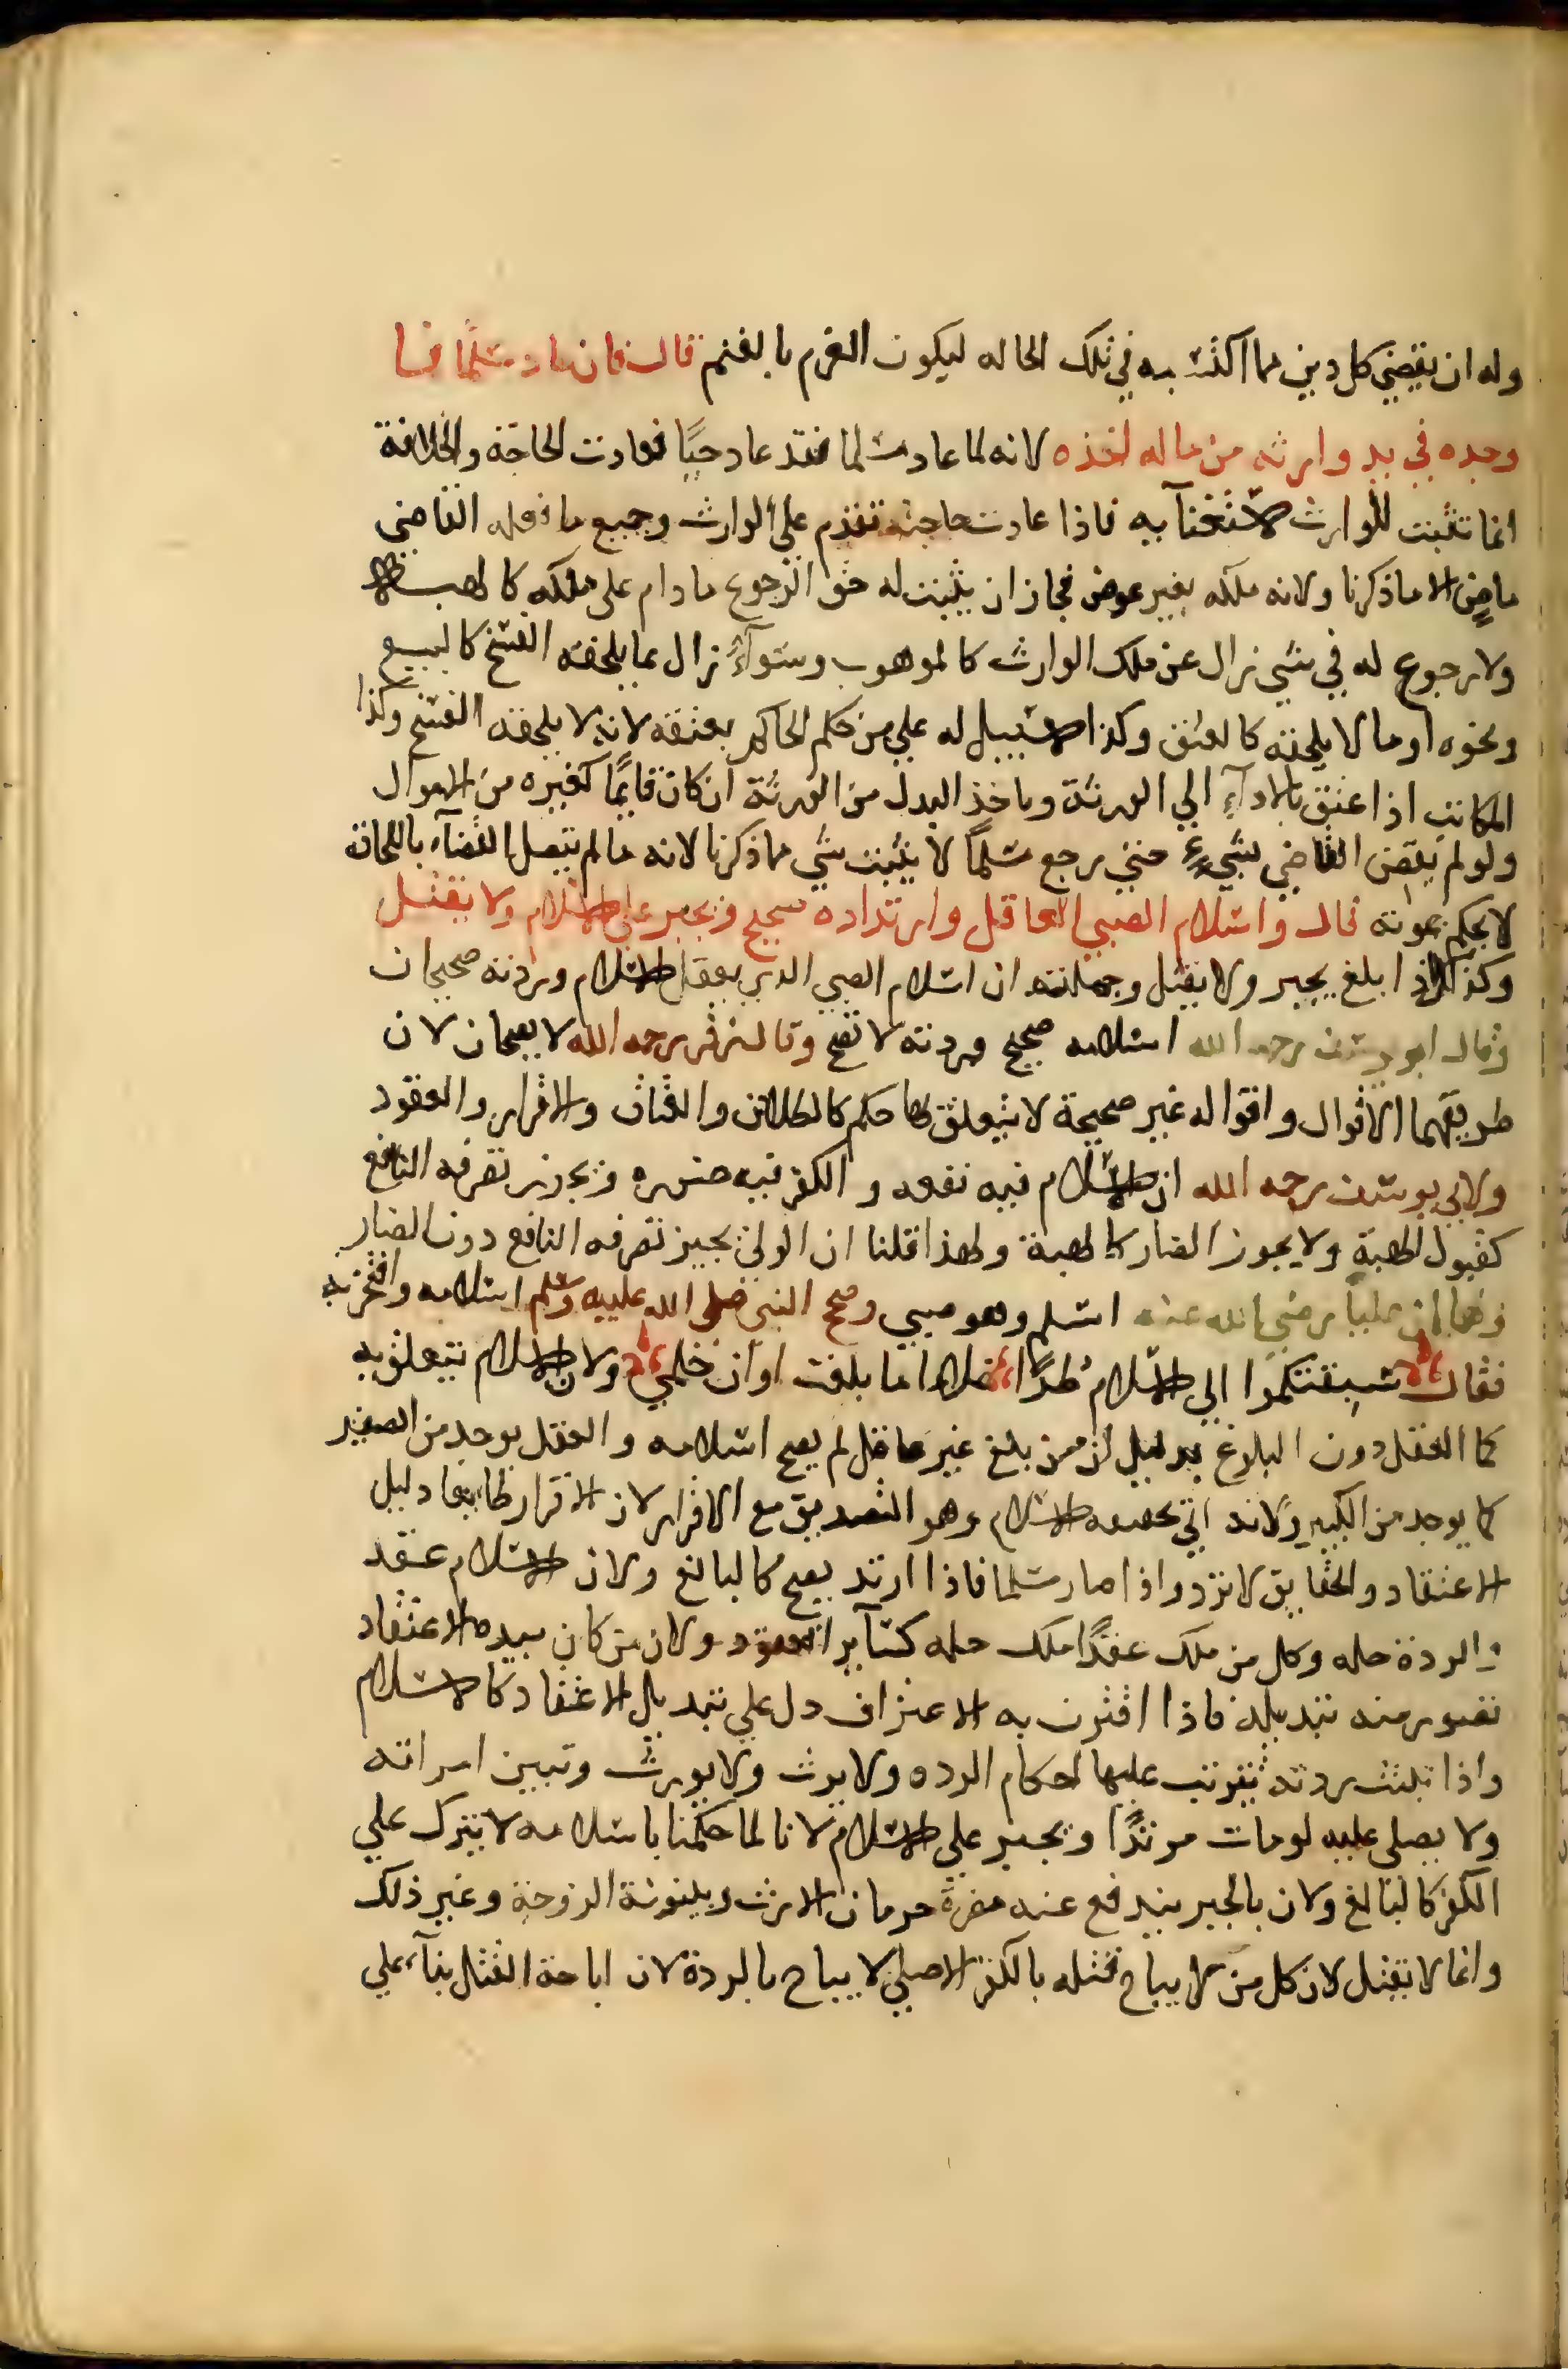 وله ان يقضي كل دين مما اكتسبه في تلك الحاله ليكون الغرم بالغنم قال فان عاد مسلما فما
وجده في يد وارثه من ماله اخذه لانه لما عاد مسلما فقد عاد حيًا فعادت الحاجة والخلافة
انما تثبت للوارث لاستغنآيه فاذا عادت حاجته تقدم على الوارث وجميع ما فعله القاضي
ماضٍ الا ما ذكرنا ولانه ملكه بغير عوض فجاز ان يثبت له حق الرجوع ما دام على ملكه كالهبة
ولا رجوع له في شي زال عن ملك الوارث كالموهوب وسوآءٌ زال بما يلحقه الفسخ كالبيع
ونحوه او ما لا يلحقه كالعتق وكذا لا سبيل له علي من حكم الحاكم بعتقه لانه لا يلحقه الفسخ وكذا
المكاتب اذا عتق بالادآءِ الي الورثة وياخذ البدل من الورثة ان كان قايمًا كغيره من الاموال
ولو لم يقض القاضي بشيءٍ حتي رجع مسلمًا لا يثبت شي مما ذكرنا لانه ما لم يتصل القضآء باللحاق
لا يحكم بموته قال واسلام الصبي العاقل وارتداده صحيح ويجبر على الاسلام ولا يقتل
وكذا اذا بلغ يجبر ولا يقتل وجملته ان اسلام الصبي الذي يعقل الاسلام وردته صحيحان
وقال ابو يوسف رحمه الله اسلامه صحيح وردته لا تصح وقال زفر رحمه الله لا يصحان لان
طريقهما الاقوال واقواله غير صحيحة لا يتعلق بها حكم كالطلاق والعتاق والاقرار والعقود
ولابي يوسف رحمه الله ان الاسلام فيه نفعه والكفر فيه ضرره ويجوز تصرفه النافع
كقبول الهبة ولا يجوز الضار كالهبة ولهذا قلنا ان الولي يجيز تصرفه النافع دون الضار
ولهما ان علياً رضي الله عنه اسلم وهو صبي وصحح النبي صلى الله عليه وسلم اسلامه وافتخر به
فقال سبقتكموا الي الاسلام طُرًا غلاما ما بلغت اوان حلمي ولان الاسلام يتعلق به
كما العقل دون البلوغ بدليل ان من بلغ غير عاقل لم يصح اسلامه والعقل يوجد من الصغير
كما يوجد من الكبير ولانه اتي بحقيقة الاسلام وهو التصديق مع الاقرار لان الاقرار طايعا دليل
الاعتقاد والحقايق لا ترد واذا صار مسلما فاذا ارتد يصح كالبالغ ولان الاسلام عقد
والردة حله وكل من ملك عقدًا ملك حله كسآير العقود ولان من كان بيده الاعتقاد
تصور منه تبديله فاذا اقترن به الاعتراف دل علي تبديل الاعتقاد كالاسلام
واذا ثبتت ردته تترتب عليها احكام الرده ولا يرث ولا يورث وتبين امراته
ولا يصلى عليه لو مات مرتدًا ويجبر علي الاسلام لانا لما حكمنا باسلامه لا يترك علي
الكفر كالبالغ ولان بالجبر يندفع عنه مضرة حرمان الارث وبينونة الزوجة وغير ذلك
وانما لا يقتل لان كل من لا يباح قتله بالكفر الاصلي لا يباح بالردة لان اباحة القتل بنآء علي